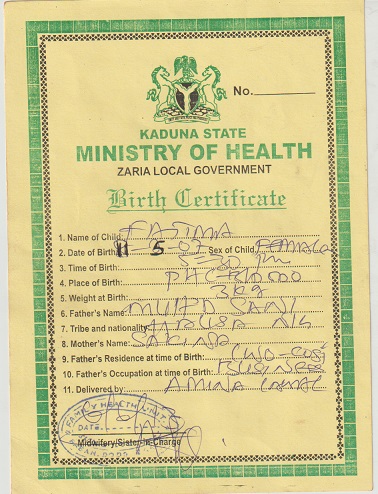 No.
KADUNA STATE
MINISTRY OF HEALTH
ZARIA LOCAL GOVERNMENT
Birth Certificate
1. Name of Child: FATIMA
2. Date of Birth: 11 5-07 Sex of Child: FEMALE
3. Time of Birth: 5-30 Pm
4. Place of Birth: PHC
5. Weight at Birth: 3kg
6. Father's Name: MUHD SANI
7. Tribe and nationality: HAUSA
8. Mother's Name: SAKINA
9. Father's Residence at time of Birth:
10. Father's Occupation at time of Birth: BUSINESS
11. Delivered by: AMINA LAWAL
FAMILY HEALTH UNIT
DATE
Midwifery/Sister-in-Charge